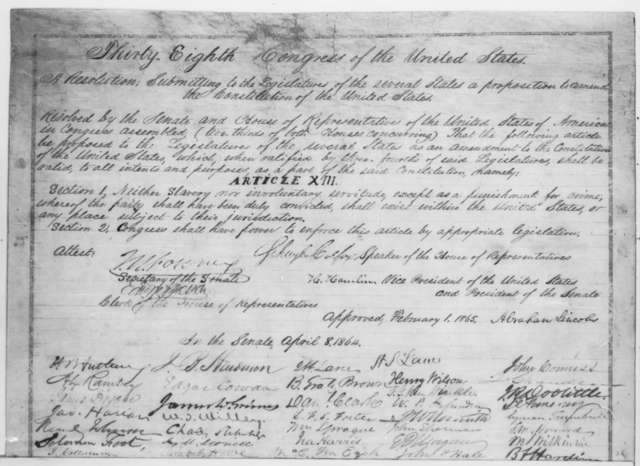 Thirty Eighth Congress of the United States.
A Resolution; Submitting to the Legislatures of the several States a proposition to amend
the Constitution of the United States.
Resolved by the Senate and House of Representatives of the United States of America
in Congress assembled, (two thirds of both Houses concurring) That the following article
be proposed to the Legislatures of the several States as an amendment to the Constitution
of the United States, which, when ratified by three fourths of said Legislatures, shall be
valid, to all intents and purposes, as a part of the said Constitution, namely:
ARTICLE XIII.
Section 1, Neither Slavery nor involuntary servitude, except as a punishment for crime,
whereof the party shall have been duly convicted, shall exist within the United States, or
any place subject to their jurisdiction.
Section 2, Congress shall have power to enforce this article by appropriate legislation.
Attest:
Schuyler Colfax, Speaker of the House of Representatives
J. W. Forney
Secretary of the Senate
H. Hamlin Vice President of the United States
and President of the Senate
Clerk of the House of Representatives
Approved, February 1, 1865. Abraham Lincoln
In the Senate, April 8, 1864.
J. B. Henderson H S Lane John Conness
Edgar Cowan B. Gratz Brown Henry Wilson J R Doolittle
Jas. Harlan James W. Grimes Dan l Clark
W. T. Willey L. F. S. Foster
Solomon Foot, Wm Sprague John Sherman
Ira Harris E D Morgan M S Wilkinson
John P Hale